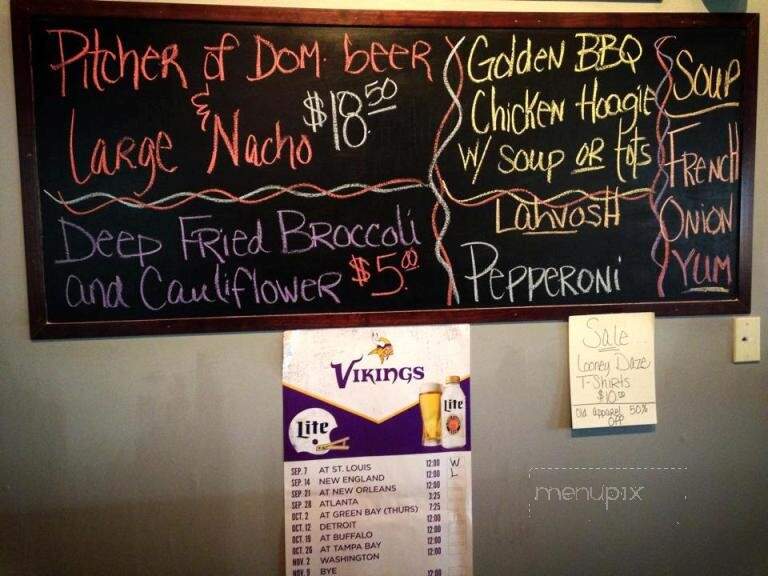 Pitcher of Dom. beer
&
Large Nacho $18.50
Deep Fried Broccoli
and Cauliflower $5.00
Golden BBQ
Chicken Hoagie
w/ soup or tots
Lahvosh
Pepperoni
Soup
French
Onion
Yum
VIKINGS
Lite
Lite
SEP. 7 AT ST. LOUIS 12:00 W
SEP. 14 NEW ENGLAND 12:00 L
SEP. 21 AT NEW ORLEANS 12:00
SEP. 28 ATLANTA 3:25
OCT. 2 AT GREEN BAY (THURS) 7:25
OCT. 12 DETROIT 12:00
OCT. 19 AT BUFFALO 12:00
OCT. 26 AT TAMPA BAY 12:00
NOV. 2 WASHINGTON 12:00
NOV. 9 BYE
12:00
Sale
Looney Daze
T-Shirts
$10.00
Old apparel 50%
OFF
menupix